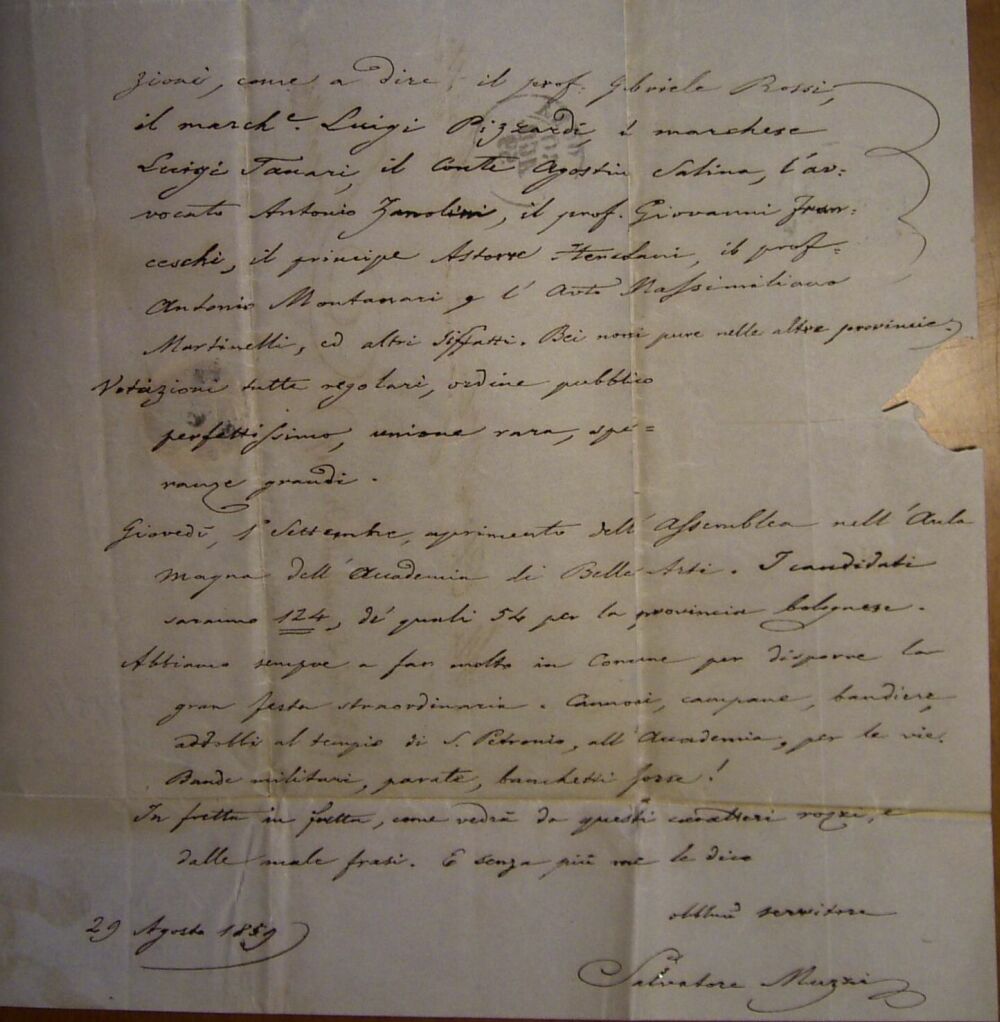 zioni, come a dire il prof. Gabriele Rossi,
il march.e Luigi Pizzardi, i marchese
Luigi Tanari, il Conte Agostin Salina, l'av=
vocato Antonio Zanolini, il prof. Giovanni Fran=
ceschi, il principe Astorre Hercolani, il prof.
Antonio Montanari e l'Avto Massimiliano
Martinelli, ed altri siffatti. Bei nomi pure nelle altre provincie.
Votazioni tutte regolari, ordine pubblico
perfettissimo, unione rara, spe=
ranze grandi.
Giovedì, 1° Settembre, aprimento dell'Assemblea nell'Aula
Magna dell'Accademia di Belle Arti. I candidati
saranno 124, de' quali 54 per la provincia bolognese.
Abbiamo sempre a far molto in Comune per disporre la
gran festa straordinaria. Cannoni, campane, bandiere,
addobbi al tempio di S. Petronio, all'Accademia, per le vie.
Bande militari, parate, banchetti forse!
In fretta in fretta, come vedrà da questi caratteri rozzi, e
dalle male frasi. E senza più me le dico
obblmo servitore
29 Agosto 1859
Salvatore Muzzi